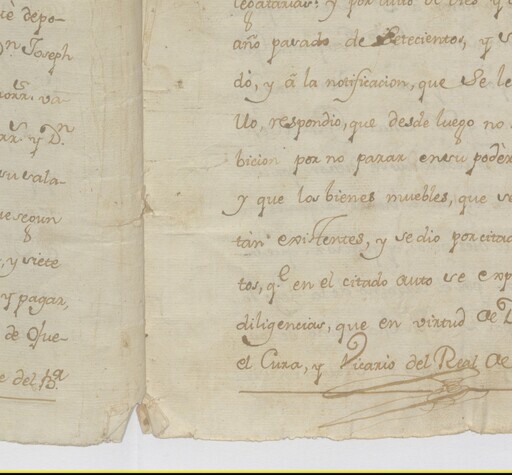 tè depo-
Dn. Joseph
rora. va-
ar. y Dn.
su sala-
ue segun
, y siete
y pagar,
de Que-
e del
legatarias: y por tanto
año pasado de Setecientos, y
do, y â la notificacion, que Se le
llo, respondio, que desde luego no
bicion por no parar en su podèr
y que los bienes muebles, que se
tàn existentes, y se dio por citad
tos, q.e en el citado auto se exp
diligencias, que en virtud de D
el Cura, y Vicario del Real de